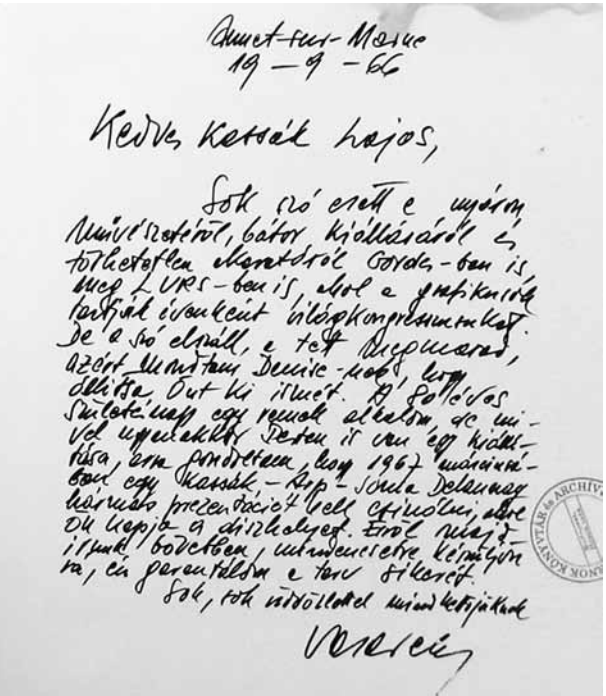 Annet-sur-Marne
19 – 9 – 66
Kedves Kassák Lajos,
Sok szó esett e nyáron
művészetéről, bátor kiállásáról és
törhetetlen akaratáról Gordes-ban is,
meg LURS-ben is, ahol a grafikusok
tartják évenként világkongresszusukat.
De a szó elszáll, a tett megmarad,
azért mondtam Denise-nek, hogy
állítsa Önt ki ismét. A 80 éves
születésnap egy remek alkalom, de mi-
vel ugyanakkor Pesten is van egy kiállí-
tása, arra gondoltam, hogy 1967 márciusá-
ban egy Kassák – Arp – Sonia Delaunay
hármas prezentációt kell csinálni, ahol
Ön kapja a díszhelyet. Erről majd
írunk bővebben, mindenesetre készüljön
rá, én garantálom a terv sikerét.
Sok, sok üdvözlettel mindkettőjüknek
Vasarely